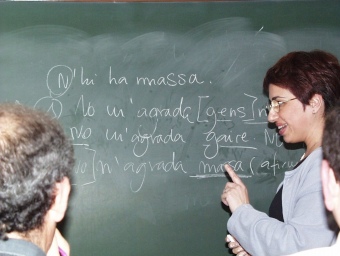 N'hi ha massa.
No m'agrada [gens]
No m'agrada gaire
No] m'agrada massa (